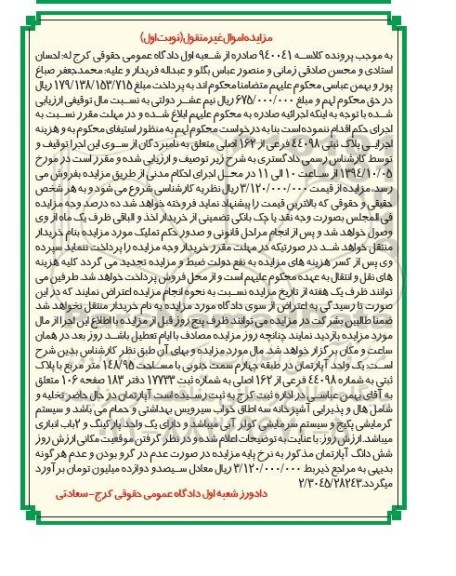 مزایده اموال غیر منقول (نوبت اول)
به موجب پرونده کلاسه ۹۴۰۰۴۱ صادره از شعبه اول دادگاه عمومی حقوقی کرج له: احسان
استادی و محسن صادقی زمانی و منصور عباس بگلو و عبداله فریدار و علیه: محمدجعفر صباغ
پور و بهمن عباسی محکوم علیهم متضامنا محکوم اند به پرداخت مبلغ ۱۷۹/۱۳۸/۱۵۳/۷۱۵ ریال
در حق محکوم لهم و مبلغ ۶۷۵/۰۰۰/۰۰۰ ریال نیم عشر دولتی به نسبت مال توقیفی ارزیابی
شده با توجه به اینکه اجرائیه صادره به محکوم علیهم ابلاغ شده و در مهلت مقرر نسبت به
اجرای حکم اقدام ننموده است بنا به درخواست محکوم لهم به منظور استیفای محکوم به و هزینه
اجرایی پلاک ثبتی ۴۴۰۹۸ فرعی از ۱۶۲ اصلی متعلق به نامبردگان از سوی این اجرا توقیف و
توسط کارشناس رسمی دادگستری به شرح زیر توصیف و ارزیابی شده و مقرر است در مورخ
۱۳۹۴/۱۰/۰۵ از ساعت ۱۰ الی ۱۱ در محل اجرای احکام مدنی از طریق مزایده بفروش می
رسد. مزایده از قیمت ۳/۱۲۰/۰۰۰/۰۰۰ ریال نظریه کارشناسی شروع می شود و به هر شخص
حقیقی و حقوقی که بالاترین قیمت را پیشنهاد نماید فروخته خواهد شد. ده درصد وجه مزایده
فی المجلس بصورت وجه نقد یا چک بانکی تضمینی از خریدار اخذ و الباقی ظرف یک ماه از وی
وصول خواهد شد و پس از انجام مراحل قانونی و صدور حکم تملیک مورد مزایده بنام خریدار
منتقل خواهد شد در صورتیکه در مهلت مقرر خریدار وجه مزایده را پرداخت ننماید سپرده
وی پس از کسر هزینه های مزایده به نفع دولت ضبط و مزایده تجدید می گردد کلیه هزینه
های نقل و انتقال به عهده محکوم علیهم است و از محل فروش پرداخت خواهد شد. طرفین می
توانند ظرف یک هفته از تاریخ مزایده نسبت به نحوه انجام مزایده اعتراض نمایند که در این
صورت تا رسیدگی به اعتراض از سوی دادگاه مورد مزایده به نام خریدار منتقل نخواهد شد
ضمنا طالبین بشرکت در مزایده می توانند ظرف پنج روز قبل از مزایده با اطلاع این اجرا از مال
مورد مزایده بازدید نمایند چنانچه روز مزایده مصادف با ایام تعطیل باشد روز بعد در همان
ساعت و مکان برگزار خواهد شد. مال مورد مزایده و بهای آن طبق نظر کارشناس بدین شرح
است: یک واحد آپارتمان در طبقه چهارم سمت جنوبی با مساحت ۱۴۸/۹۵ متر مربع با پلاک
ثبتی به شماره ۴۴۰۹۸ فرعی از ۱۶۲ اصلی به شماره ثبت ۱۷۷۳۳ دفتر ۱۸۳ صفحه ۱۰۶ متعلق
به آقای بهمن عباسی در اداره ثبت کرج به ثبت رسیده است. آپارتمان در حال حاضر تخلیه و
شامل هال و پذیرایی آشپزخانه سه اطاق خواب سرویس بهداشتی و حمام می باشد و سیستم
گرمایشی پکیج و سیستم سرمایشی کولر آبی میباشد و دارای یک واحد پارکینگ و ۲ باب انباری
میباشد. ارزش روز: با عنایت به توضیحات اعلام شده و در نظر گرفتن موقعیت مکانی ارزش روز
شش دانگ آپارتمان مذکور به نرخ پایه مزایده در صورت عدم در گرو بودن و عدم هرگونه
بدیهی به مراجع ذیربط ۳/۱۲۰/۰۰۰/۰۰۰ ریال معادل سیصد و دوازده میلیون تومان برآورد
میگردد. ۲/۳۰۴۵/۲۸۲۴۳
دادورز شعبه اول دادگاه عمومی حقوقی کرج - سعادتی